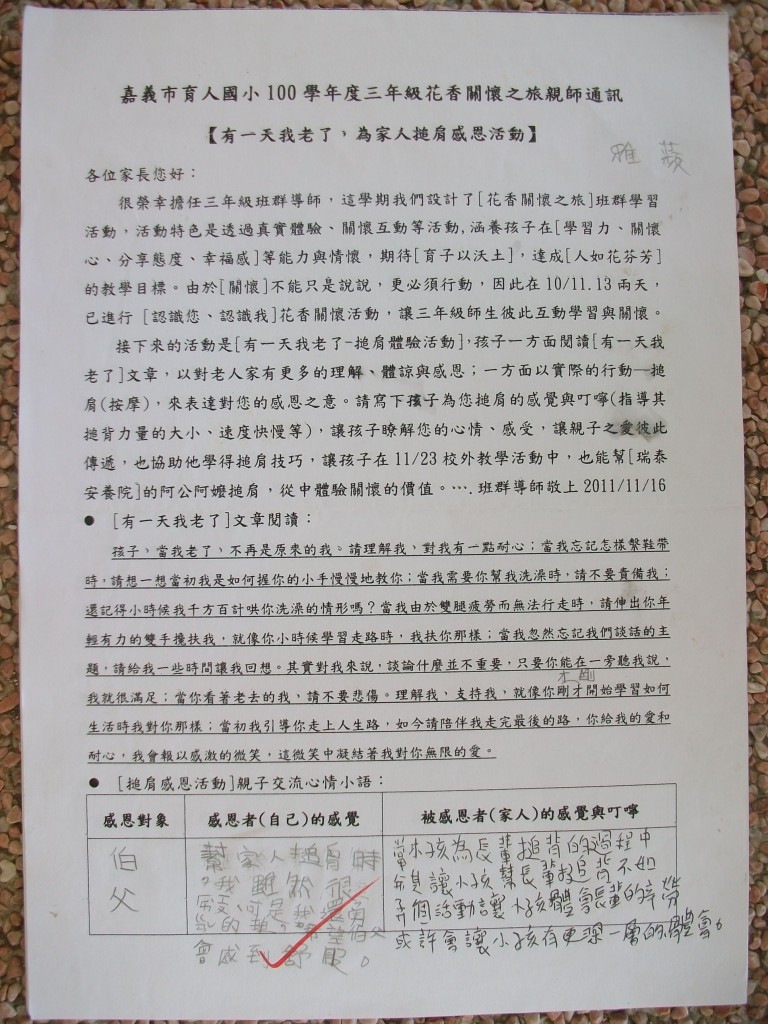 嘉義市育人國小100學年度三年級花香關懷之旅親師通訊
【有一天我老了，為家人搥肩感恩活動】
雅
各位家長您好：
很榮幸擔任三年級班群導師，這學期我們設計了[花香關懷之旅]班群學習
活動，活動特色是透過真實體驗、關懷互動等活動,涵養孩子在[學習力、關懷
心、分享態度、幸福感]等能力與情懷，期待[育子以沃土]，達成[人如花芬芳]
的教學目標。由於[關懷]不能只是說說，更必須行動，因此在10/11.13兩天，
已進行 [認識您、認識我]花香關懷活動，讓三年級師生彼此互動學習與關懷。
接下來的活動是[有一天我老了-搥肩體驗活動],孩子一方面閱讀[有一天我
老了]文章，以對老人家有更多的理解、體諒與感恩；一方面以實際的行動—搥
肩(按摩)，來表達對您的感恩之意。請寫下孩子為您搥肩的感覺與叮嚀(指導其
搥背力量的大小、速度快慢等)，讓孩子瞭解您的心情、感受，讓親子之愛彼此
傳遞，也協助他學得搥肩技巧，讓孩子在11/23校外教學活動中，也能幫[瑞泰
安養院]的阿公阿嬤搥肩，從中體驗關懷的價值。….班群導師敬上 2011/11/16
● [有一天我老了]文章閱讀：
孩子，當我老了，不再是原來的我。請理解我，對我有一點耐心；當我忘記怎樣繫鞋帶
時，請想一想當初我是如何握你的小手慢慢地教你；當我需要你幫我洗澡時，請不要責備我；
還記得小時候我千方百計哄你洗澡的情形嗎？當我由於雙腿疲勞而無法行走時，請伸出你年
輕有力的雙手攙扶我，就像你小時候學習走路時，我扶你那樣；當我忽然忘記我們談話的主
題，請給我一些時間讓我回想。其實對我來說，談論什麼並不重要，只要你能在一旁聽我說，
我就很滿足；當你看著老去的我，請不要悲傷。理解我，支持我，就像你剛才開始學習如何
才剛
生活時我對你那樣；當初我引導你走上人生路，如今請陪伴我走完最後的路，你給我的愛和
耐心，我會報以感激的微笑，這微笑中凝結著我對你無限的愛。
● [搥肩感恩活動]親子交流心情小語：
感恩對象 感恩者(自己)的感覺 被感恩者(家人)的感覺與叮嚀
伯父
幫家人搥肩時
，我雖然很
可是我還
的 希望伯父
會感到舒服。
當小孩為長輩搥背的過程中
讓小孩幫長輩搥背不如
個活動讓小孩體會長輩的辛勞
或許會讓小孩有更深一層的體會。